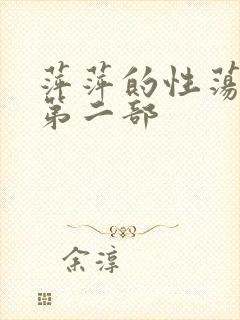 萍萍的性荡
第二部
余淳